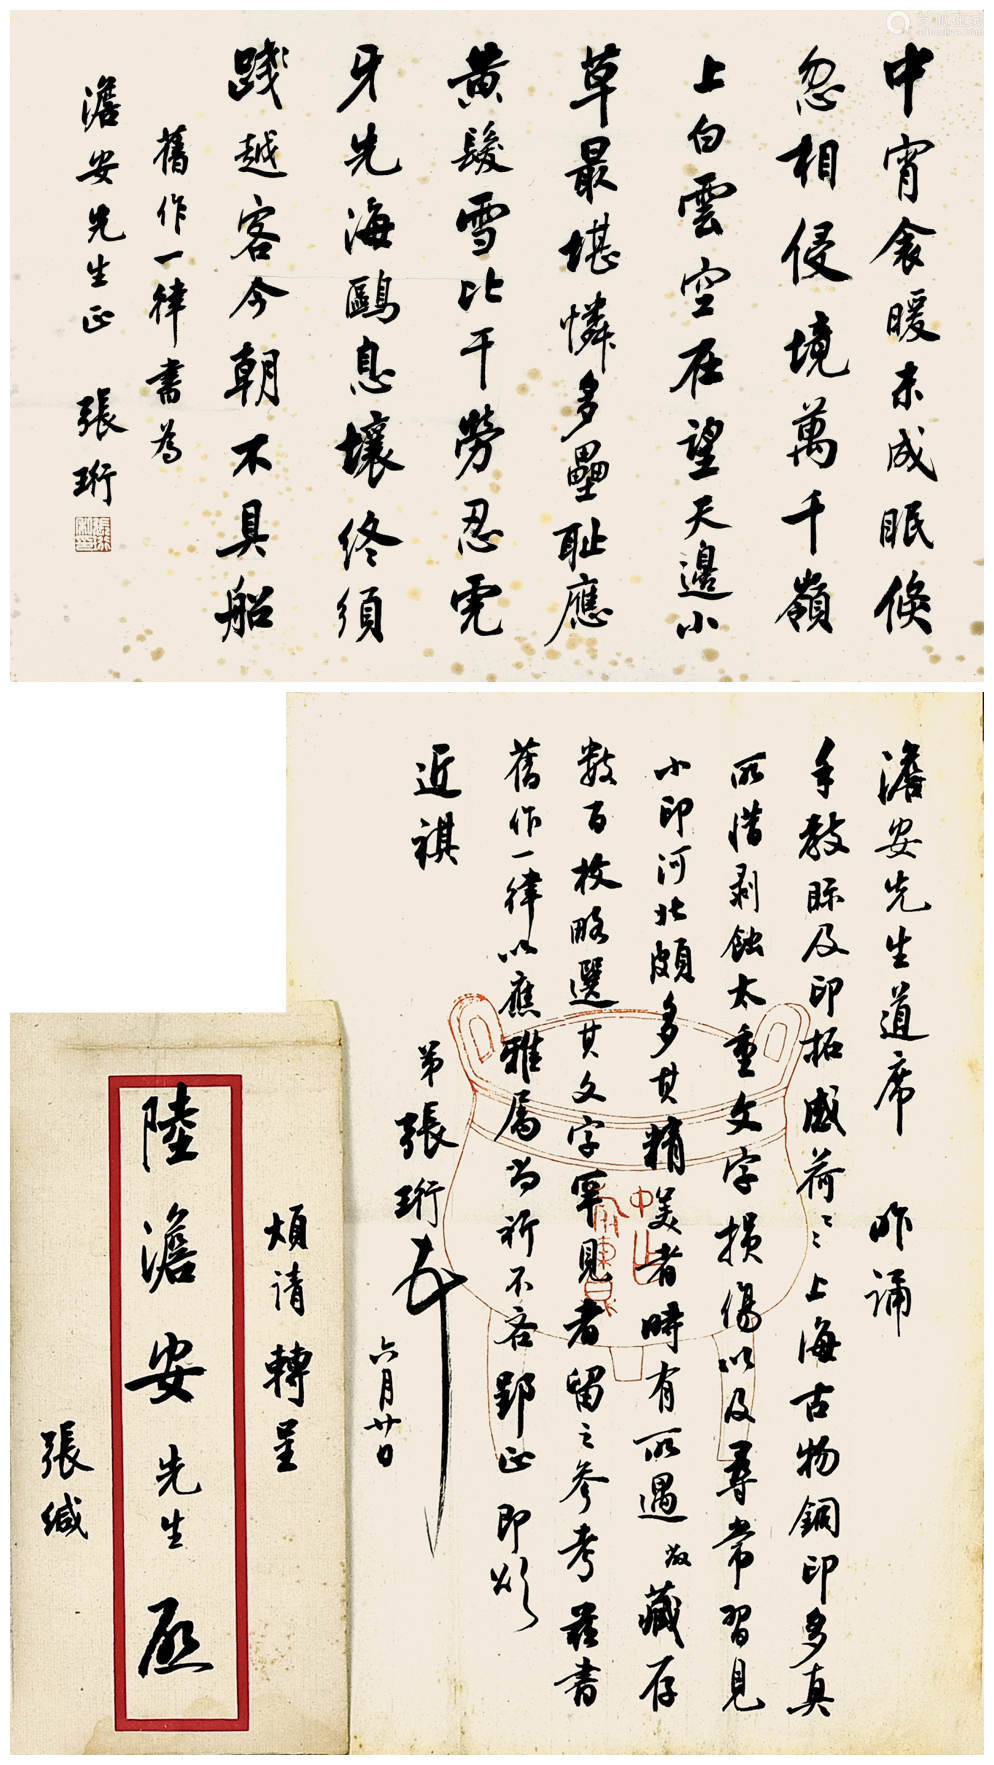 中宵衾暖未成眠倏
忽相侵境萬千嶺
上白雲空在望天邊小
草最堪憐多壘恥應
黃髮雪比干勞忍
牙先海鷗息壤終須
踐越客今朝不具船
舊作一律書為
澹安先生正 張珩
澹安先生道席 昨誦
手教賜及印拓感荷〻上海古物銅印多真
所惜剥蝕太重文字損傷以及尋常習見
小印河北頗多其精美者時有所遇故藏存
數百枚略選其文字罕見者留之參考茲書
舊作一律以應雅屬尚祈不吝郢正 即頌
近祺
弟張珩
六月廿日
煩請轉呈
陸澹安先生啟
張緘